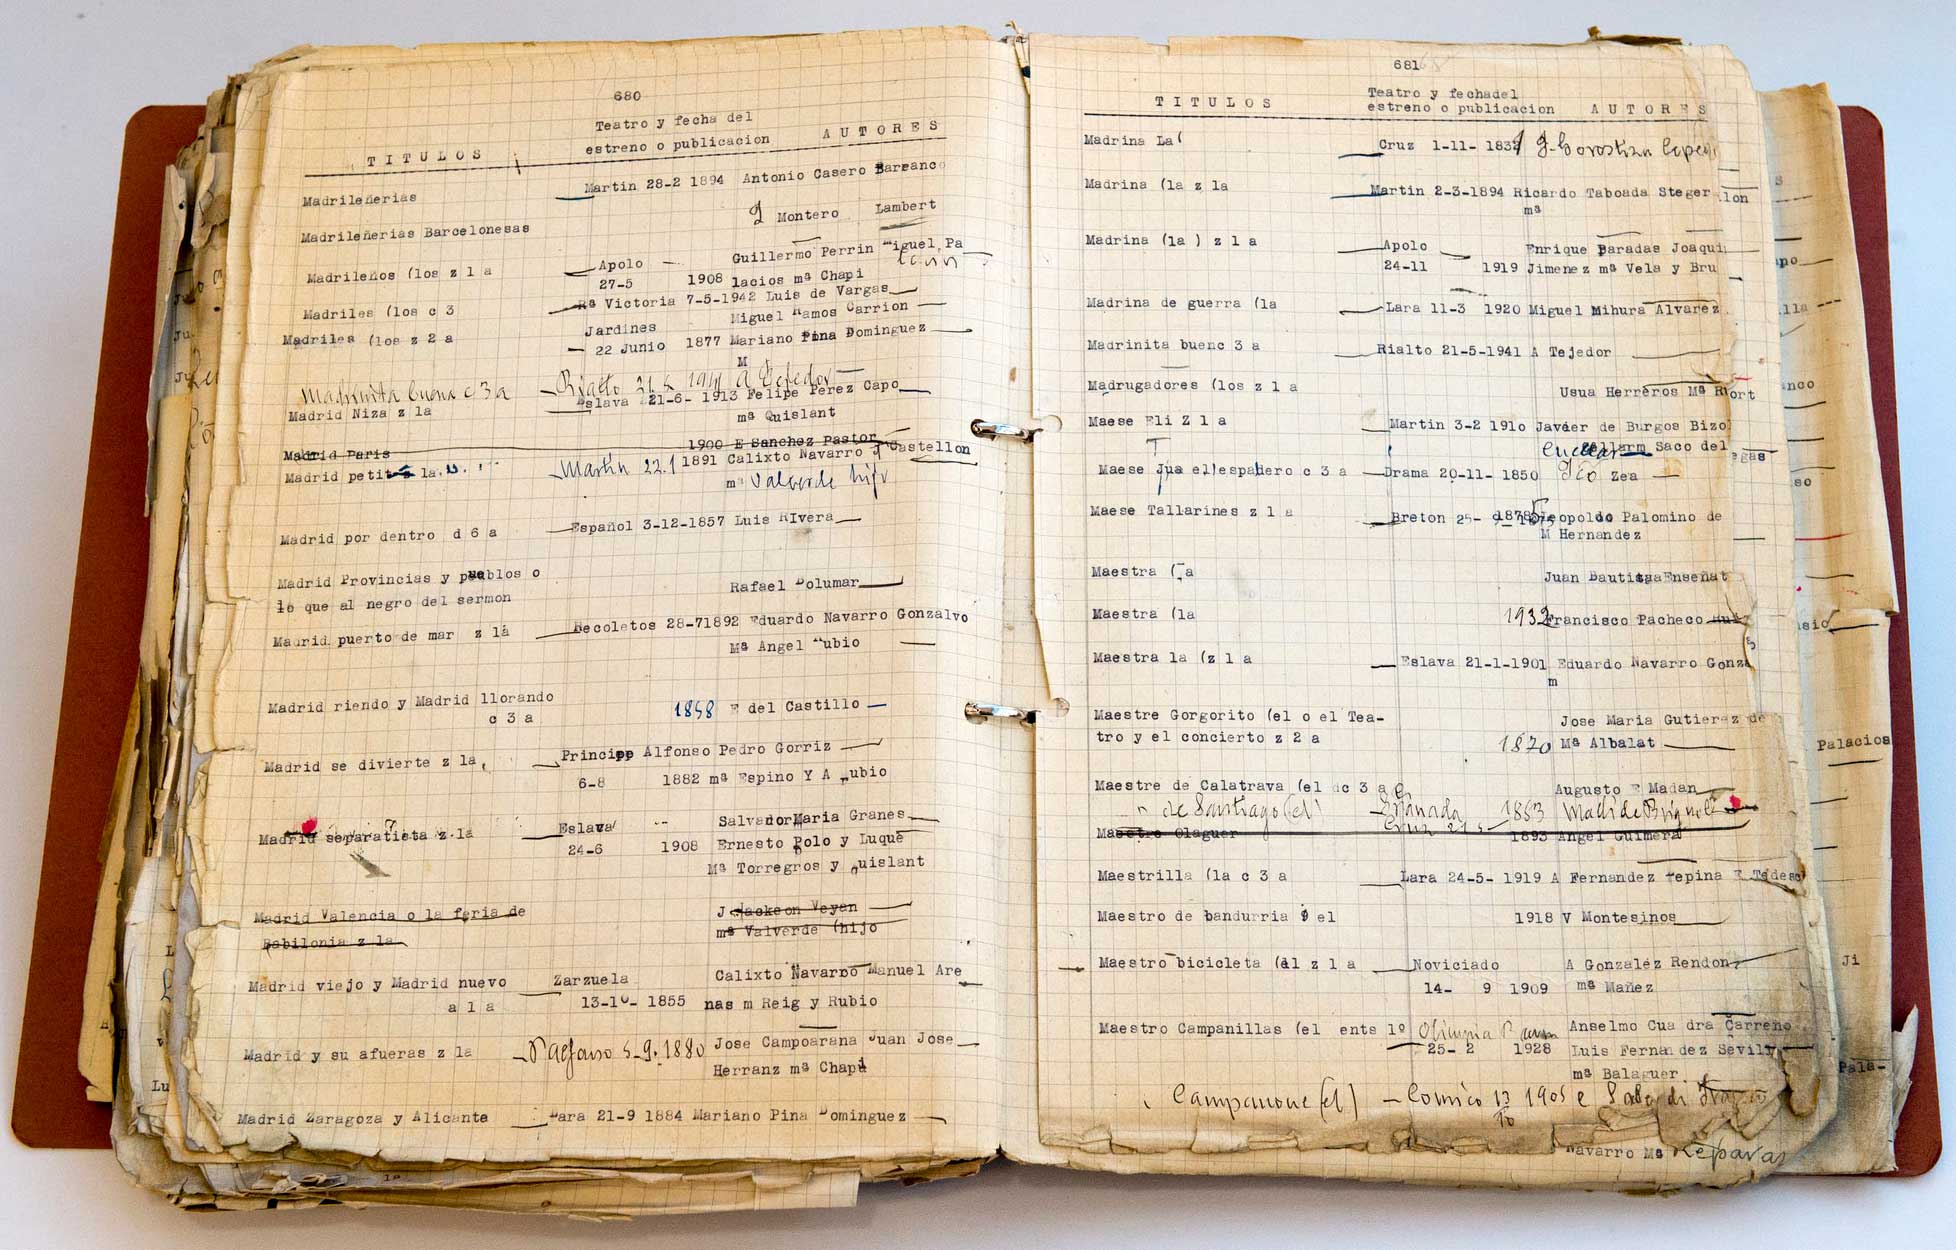 680
Teatro y fecha del
TITULOS estreno o publicacion AUTORES
Madrileñerias Martin 28-2 1894 Antonio Casero Barranco
Montero Lambert
Madrileñerias Barcelonesas
Guillermo Perrin Miguel Pa
Madrileños (los z 1 a Apolo
27-5 1908 lacios mª Chapi
Madriles (los c 3 Rª Victoria 7-5-1942 Luis de Vargas
Jardines Miguel Ramos Carrion
Madriles (los z 2 a 22 Junio 1877 Mariano Pina Dominguez
M
Madrinita buena c 3 a Rialto 1941 A Tejedor
Madrid Niza z la Eslava 21-6- 1913 Felipe Perez Capo
mª Quislant
Madrid Paris 1900 E Sanchez Pastor
Madrid petit la Martin 22.1 1891 Calixto Navarro y Castellon
mª Valverde hijo
Madrid por dentro d 6 a Español 3-12-1857 Luis RIvera
Madrid Provincias y pueblos o
lo que al negro del sermon Rafael Dolumar
Madrid puerto de mar z la Recoletos 28-71892 Eduardo Navarro Gonzalvo
Mª Angel Rubio
Madrid riendo y Madrid llorando
c 3 a 1858 E del Castillo
Madrid se divierte z la Principe Alfonso Pedro Gorriz
6-8 1882 mª Espino Y A Rubio
Salvador Maria Granes
Madrid separatista z la Eslava
24-6 1908 Ernesto Polo y Luque
Mª Torregros y Quislant
Madrid Valencia o la feria de J Jackson Veyan
Babilonia z la mª Valverde (hijo
Madrid viejo y Madrid nuevo Zarzuela Calixto Navarro Manuel Are
a 1 a 13-10- 1855 nas m Reig y Rubio
Madrid y su afueras z la P Alfonso 5-9-1880 Jose Campoarana Juan Jose
Herranz mª Chapi
Madrid Zaragoza y Alicante Lara 21-9 1884 Mariano Pina Dominguez
681
Teatro y fechadel
TITULOS estreno o publicacion AUTORES
Madrina La Cruz 1-11- 183 Gorostiza
Madrina (la z la Martin 2-3-1894 Ricardo Taboada Steger
mª
Madrina (la ) z 1 a Apolo Enrique Paradas Joaquin
24-11 1919 Jimenez mª Vela y Bru
Madrina de guerra (la Lara 11-3 1920 Miguel Mihura Alvarez
Madrinita buenc 3 a Rialto 21-5-1941 A Tejedor
Madrugadores (los z 1 a Usua Herreros Mª
Maese Eli Z 1 a Martin 3-2 1910 Javier de Burgos Bizo
Saco del
Maese Jua el espadero c 3 a Drama 20-11- 1850 Zea
Maese Tallarines z 1 a Breton 25- Leopoldo Palomino de
M Hernandez
Maestra (la Juan Bautista Enseñat
Maestra (la 1932 Francisco Pacheco
Maestra la (z 1 a Eslava 21-1-1901 Eduardo Navarro Gonza
m
Maestre Gorgorito (el o el Tea- Jose Maria Gutierez de
tro y el concierto z 2 a 1870 Mª Albalat
Maestre de Calatrava (el dc 3 a Augusto E Madan
" de Santiago (el) Granada 1853
Maestro Olaguer 1893 Angel Guimera
Maestrilla (la c 3 a Lara 24-5- 1919 A Fernandez Lepina E Tedesc
Maestro de bandurria el 1918 V Montesinos
Maestro bicicleta (el z 1 a Noviciado A Gonzalez Rendon
14- 9 1909 mª Mañez
Maestro Campanillas (el ents 1º Olimpia Anselmo Cua dra Carreño
25- 2 1928 Luis Fernandez Sevill
mª Balaguer
Campanone (el) Comico 13 1905
10
Navarro Mª Reparaz
Palacios
Ji
Pala-